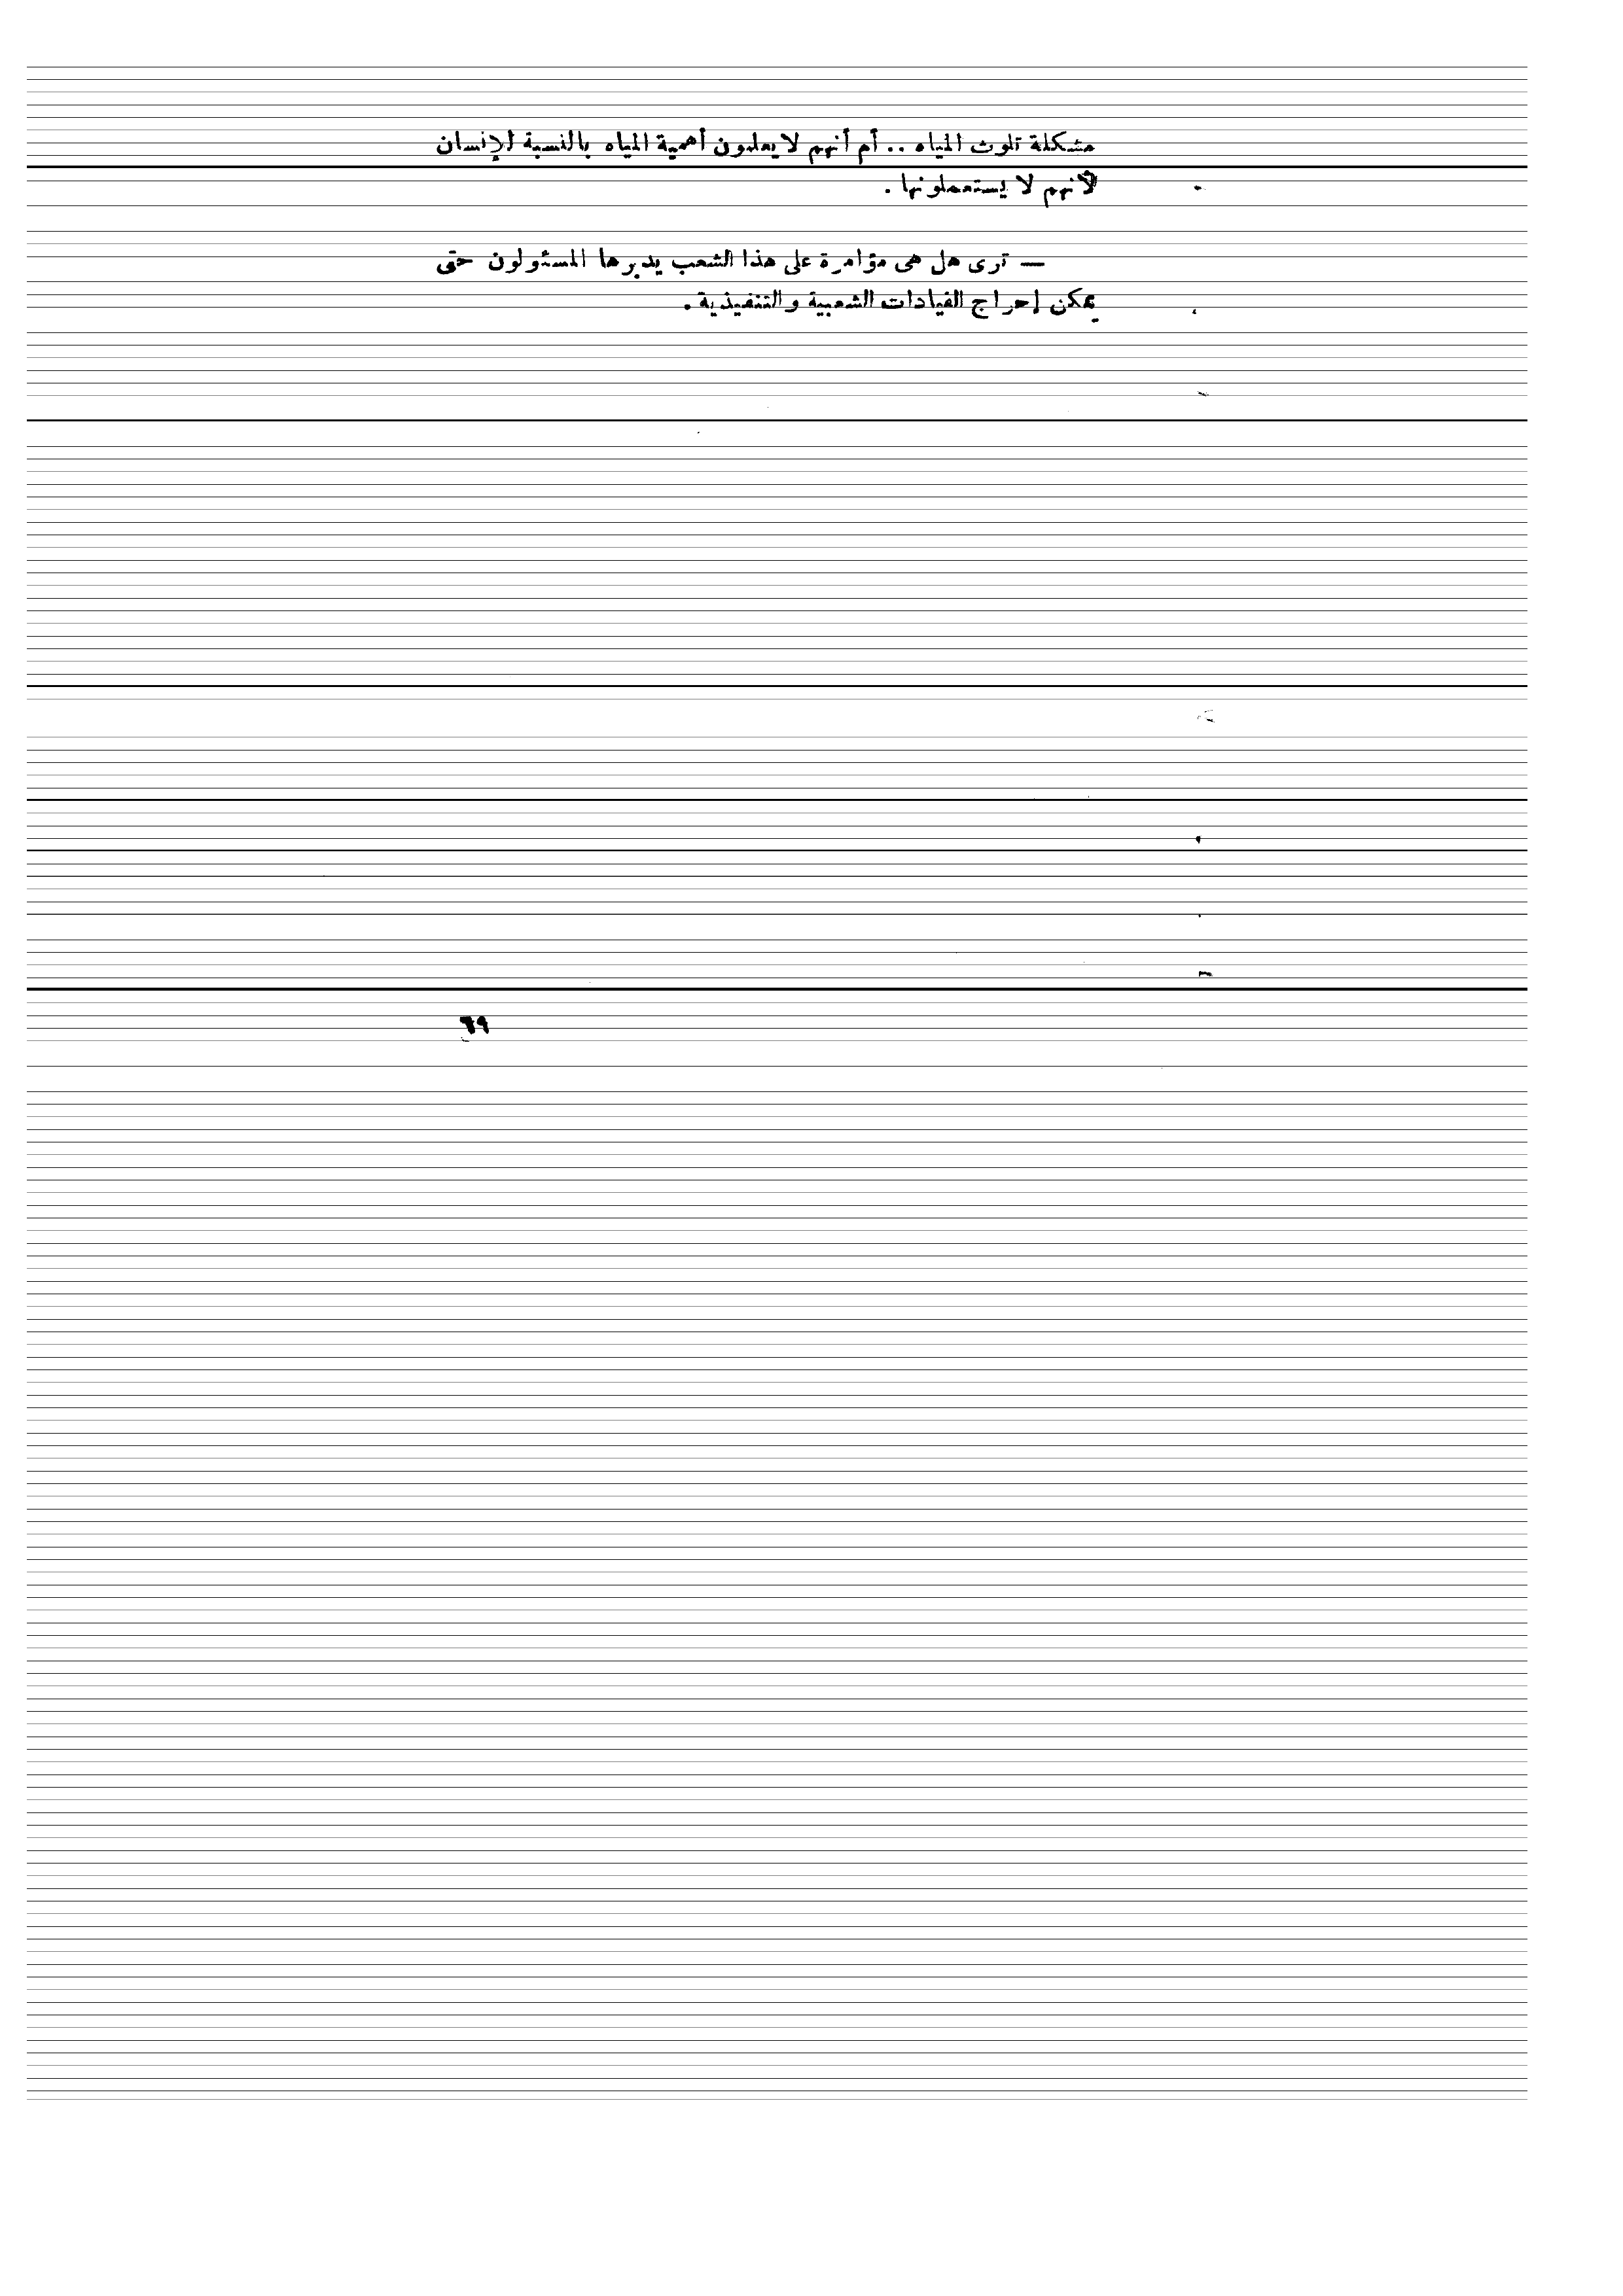 مشكلة تلوث المياه .. أم أنهم لا يعلمون أهمية المياه بالنسبة للإنسان
لأنهم لا يستعملونها .
— ترى هل هى مؤامرة على هذا الشعب يدبرها المسئولون حتى
يمكن إحراج القيادات الشعبية والتنفيذية .